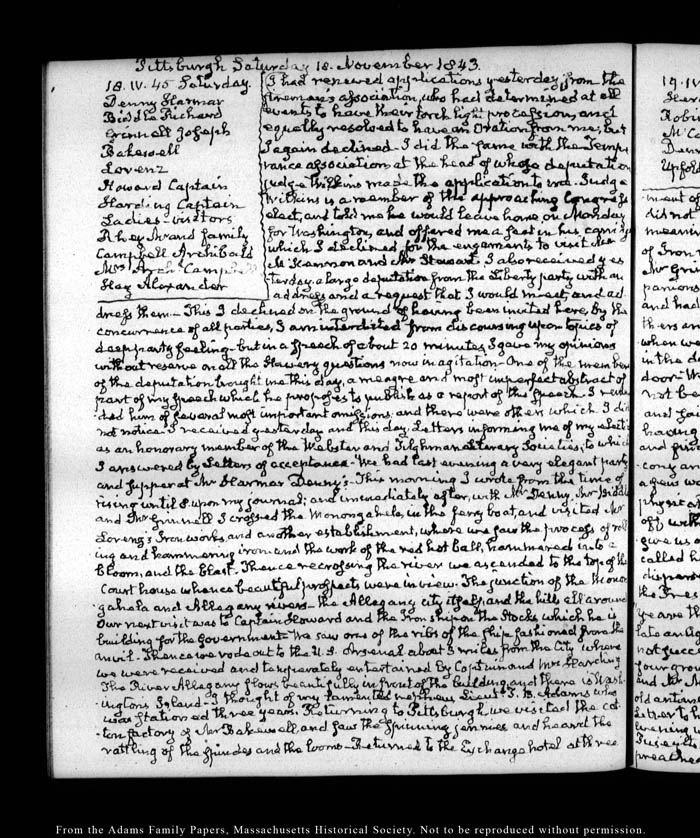 Pittsburgh Saturday 18. November 1843.
18. IV. 45 Saturday.
Denny Harmar
Biddle Richard
Grinnell Joseph
Bakewell
Lorenz
Howard Captain
Harding Captain
Ladies visitors
Rhey Mr and family
Campbell Archibald
Mrs Arch. Campbell
Hay Alexander
I had renewed applications yesterday, from the
fireman's association, who had determined at all
events to have their torch light procession, and
equally resolved to have an Oration from me; but
I again declined. I did the same with the Tempe
rance association at the head of whose deputation
Judge Wilkins made the application to me. Judge
Wilkins is a member of the approaching Congress
elect, and told me he would leave home, on Monday
for Washington, and offered me a seat in his carriage
which I declined for the engagements to visit Mr
McKennon and Mr Stewart. I also received yes
terday, a large deputation from the Liberty party with an
address and a request that I would meet, and ad
dress them. This I declined on the ground of having been invited here, by the
concurrence of all parties, I am interdicted from discoursing upon topics of
deep party feeling. but in a speech of about 20 minutes, I gave my opinions
without reserve on all the Slavery questions now in agitation. One of the members
of the deputation brought me this day, a meagre and most imperfect abstract of
part of my speech which he proposes to publish as a report of the speech. I remin
ded him of several most important omissions, and there were others which I did
not notice. I received yesterday and this day, Letters informing me of my election
as an honorary member of the Webster and Tilghman Literary Societies, to which
I answered by Letters of acceptance. We had last evening a very elegant party
and supper at Mr Harmar Denny's. This morning I wrote from the time of
rising until 8 upon my journal; and immediately after, with Mr Denny, Mr Biddle
and Mr Grinnell I crossed the Monongahela, in the ferry boat, and visited Mr
Lorenz's Iron works, and another establishment, where we saw the process of roll
ing and hammering iron and the work of the red hot ball, hammered into a
bloom, and the blast. Thence recrossing the river we ascended to the top of the
Court house whence beautiful prospects were in view. The junction of the Monon
gahela and Allegany rivers. the Allegany city itself, and the hills all around
Our next visit was to Captain Howard and the Iron ship on the Stocks which he is
building for the Government. We saw one of the ribs of the ship fashioned from the
anvil. Thence we rode out to the U.S. Arsenal about 3 miles from the City where
we were received and temperately entertained by Captain and Mrs Harding
The River Allegany flows beautifully in front of the building, and there is Wash
ingtons Island. I thought of my lamented nephew Lieut T. B. Adams who
was stationed three years. Returning to Pittsburgh, we visited the cot
ton factory of Mr Bakewell, and saw the spinning jennies and heard the
rattling of the spindles and the looms. Returned to the Exchange hotel at three
From the Adams Family Papers, Massachusetts Historical Society. Not to be reproduced without permission.